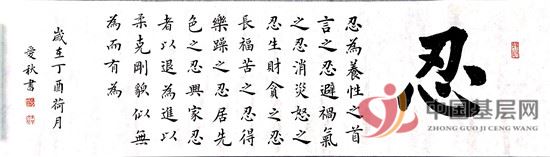 忍
忍為養性之首
言之忍避禍氣
之忍消災怒之
忍生財貪之忍
長福苦之忍得
樂躁之忍居先
色之忍興家忍
者以退為進以
柔克剛貌似無
為而有為
歲在丁酉荷月
愛秋書
中国基层网
ZHONG GUO JI CENG WANG